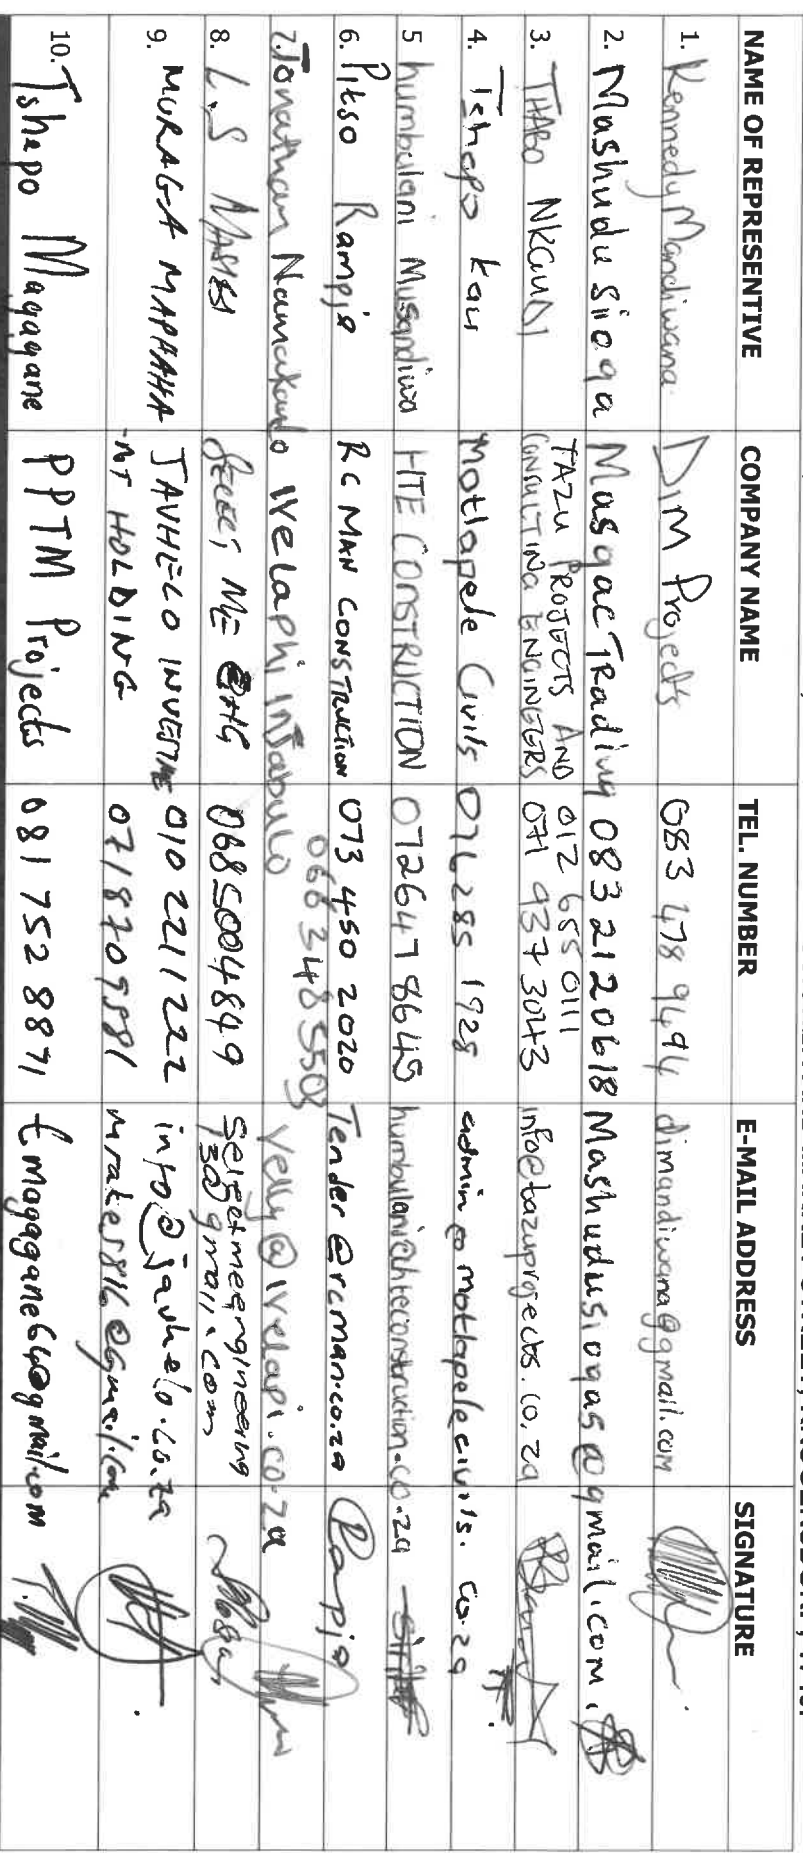 NAME OF REPRESENTIVE COMPANY NAME TEL. NUMBER E-MAIL ADDRESS SIGNATURE
1. Kennedy Mandiwana DIM Projects 083 478 9494 dimandiwana@gmail.com
2. Mashudu Sioga Masqac Trading 083 212 0618 Mashudusiogas@gmail.com.
3. THABO NKGUDI TAZU PROJECTS AND CONSULTING ENGINEERS 012 655 0111 071 937 3043 info@tazuprojects.co.za
4. Tshepo kau Motlapele Civils 076 285 1928 admin@motlapelecivils.co.za
5 humbulani Musandiwa HTE CONSTRUCTION 0726478645 humbulani@hteconstruction.co.za
6. Pitso Rampjo RC MAN CONSTRUCTION 073 450 2020 Tender@rcman.co.za
7. Jonathan Namakando Ivelaphi Injabulo 0683485503 velly@ivelapi.co.za
8. L.S 0685004849
9. MURAGA MAPHAHA JAVHELO INVESTME -NT HOLDING 010 221 1222 0718709581 info@javhelo.co.za mrakes816@gmail.com
10. Tshepo Magagane PPTM Projects 081 752 8871 tmagagane64@gmail.com